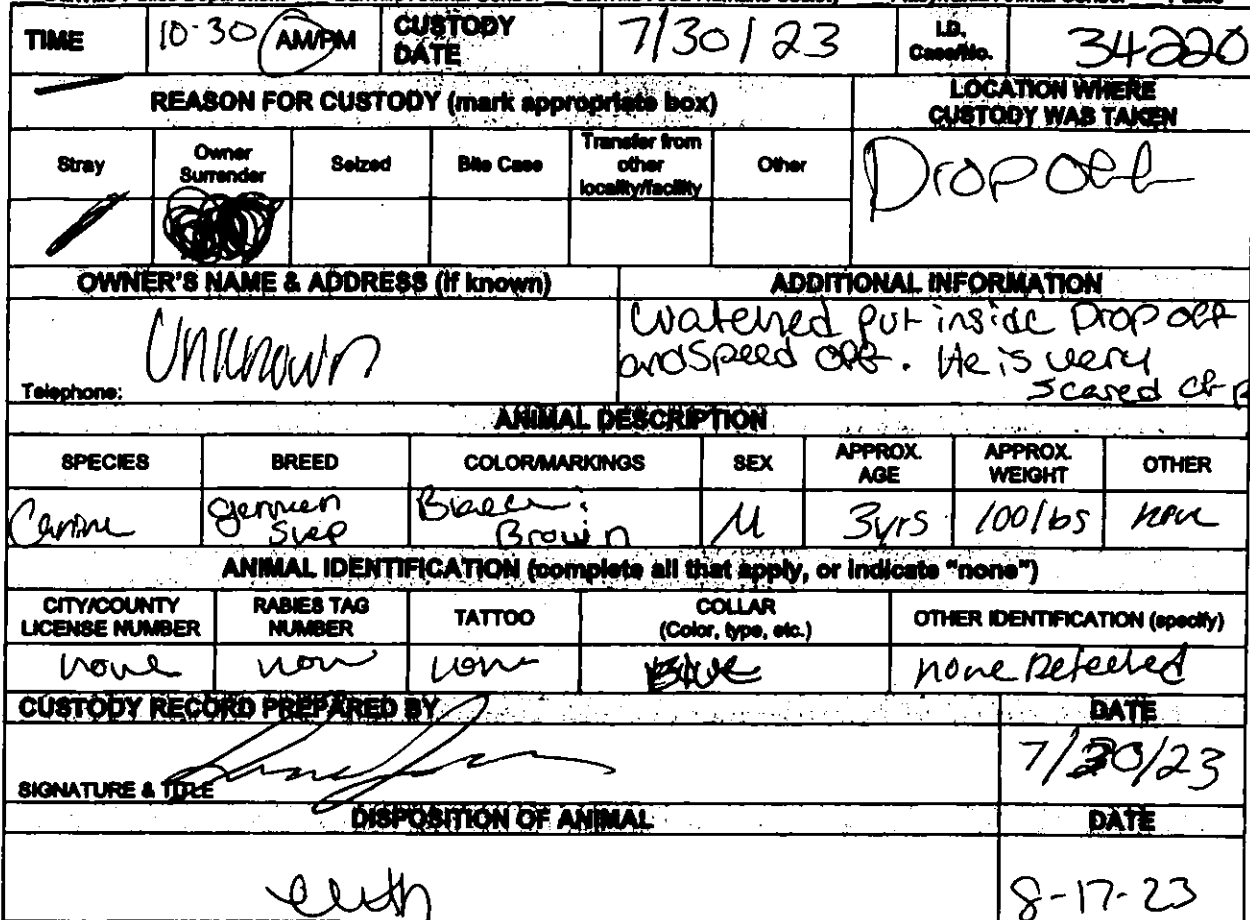 TIME 10-30 AM/PM CUSTODY DATE 7/30/23 I.D. Case/No. 34220
REASON FOR CUSTODY (mark appropriate box) LOCATION WHERE CUSTODY WAS TAKEN
Stray Owner Surrender Seized Bite Case Transfer from other locality/facility Other Drop Off
OWNER'S NAME & ADDRESS (if known) ADDITIONAL INFORMATION
Unknown
Telephone:
Watched put inside Drop off
and Speed off. He is very
scared of
ANIMAL DESCRIPTION
SPECIES BREED COLOR/MARKINGS SEX APPROX. AGE APPROX. WEIGHT OTHER
Canine German Shep Black: Brown M 3yrs 100lbs none
ANIMAL IDENTIFICATION (complete all that apply, or indicate "none")
CITY/COUNTY LICENSE NUMBER RABIES TAG NUMBER TATTOO COLLAR (Color, type, etc.) OTHER IDENTIFICATION (specify)
none non non Blue none Detected
CUSTODY RECORD PREPARED BY DATE
SIGNATURE & TITLE 7/30/23
DISPOSITION OF ANIMAL DATE
euth 8-17-23